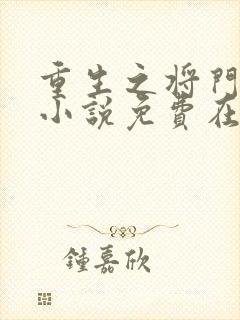 重生之将門
小說免費在
鍾嘉欣